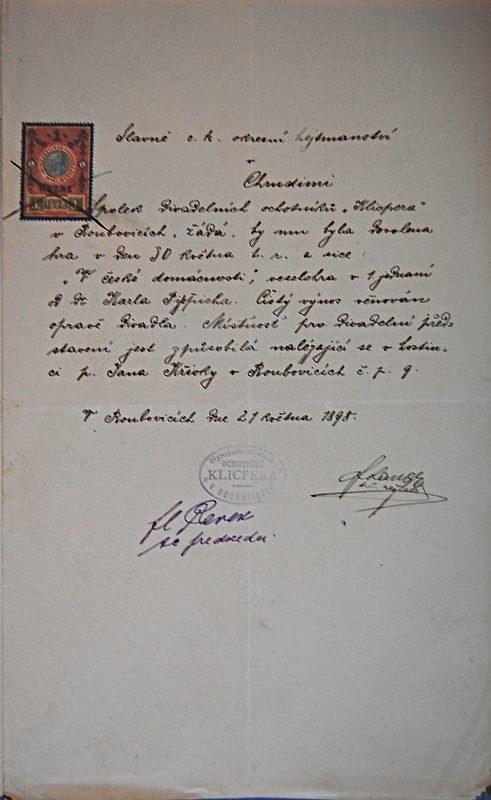 1
KRONE
1898
Slavné c. k. okresní hejtmanství
v
Chrudimi
Spolek divadelních ochotníků „Klicpera“
v Boubovicích, žádá, by mu byla dovolena
hra v den 30 května t. r. a sice:
„V české domácnosti“, veselohra v 1 jednaní
d dr. Karla Pippicha. Čistý výnos věnován
opravě divadla. Místnost pro divadelní před-
stavení jest způsobilá nalézající se v hostin-
ci p. Jana Křivky v Boubovicích č. p. 9.
V Boubovicích dne 21 května 1898.
Spolek divad.
OCHOTNÍKŮ
„KLICPERA“
v BOUBOVICÍCH
t. č. předseda.